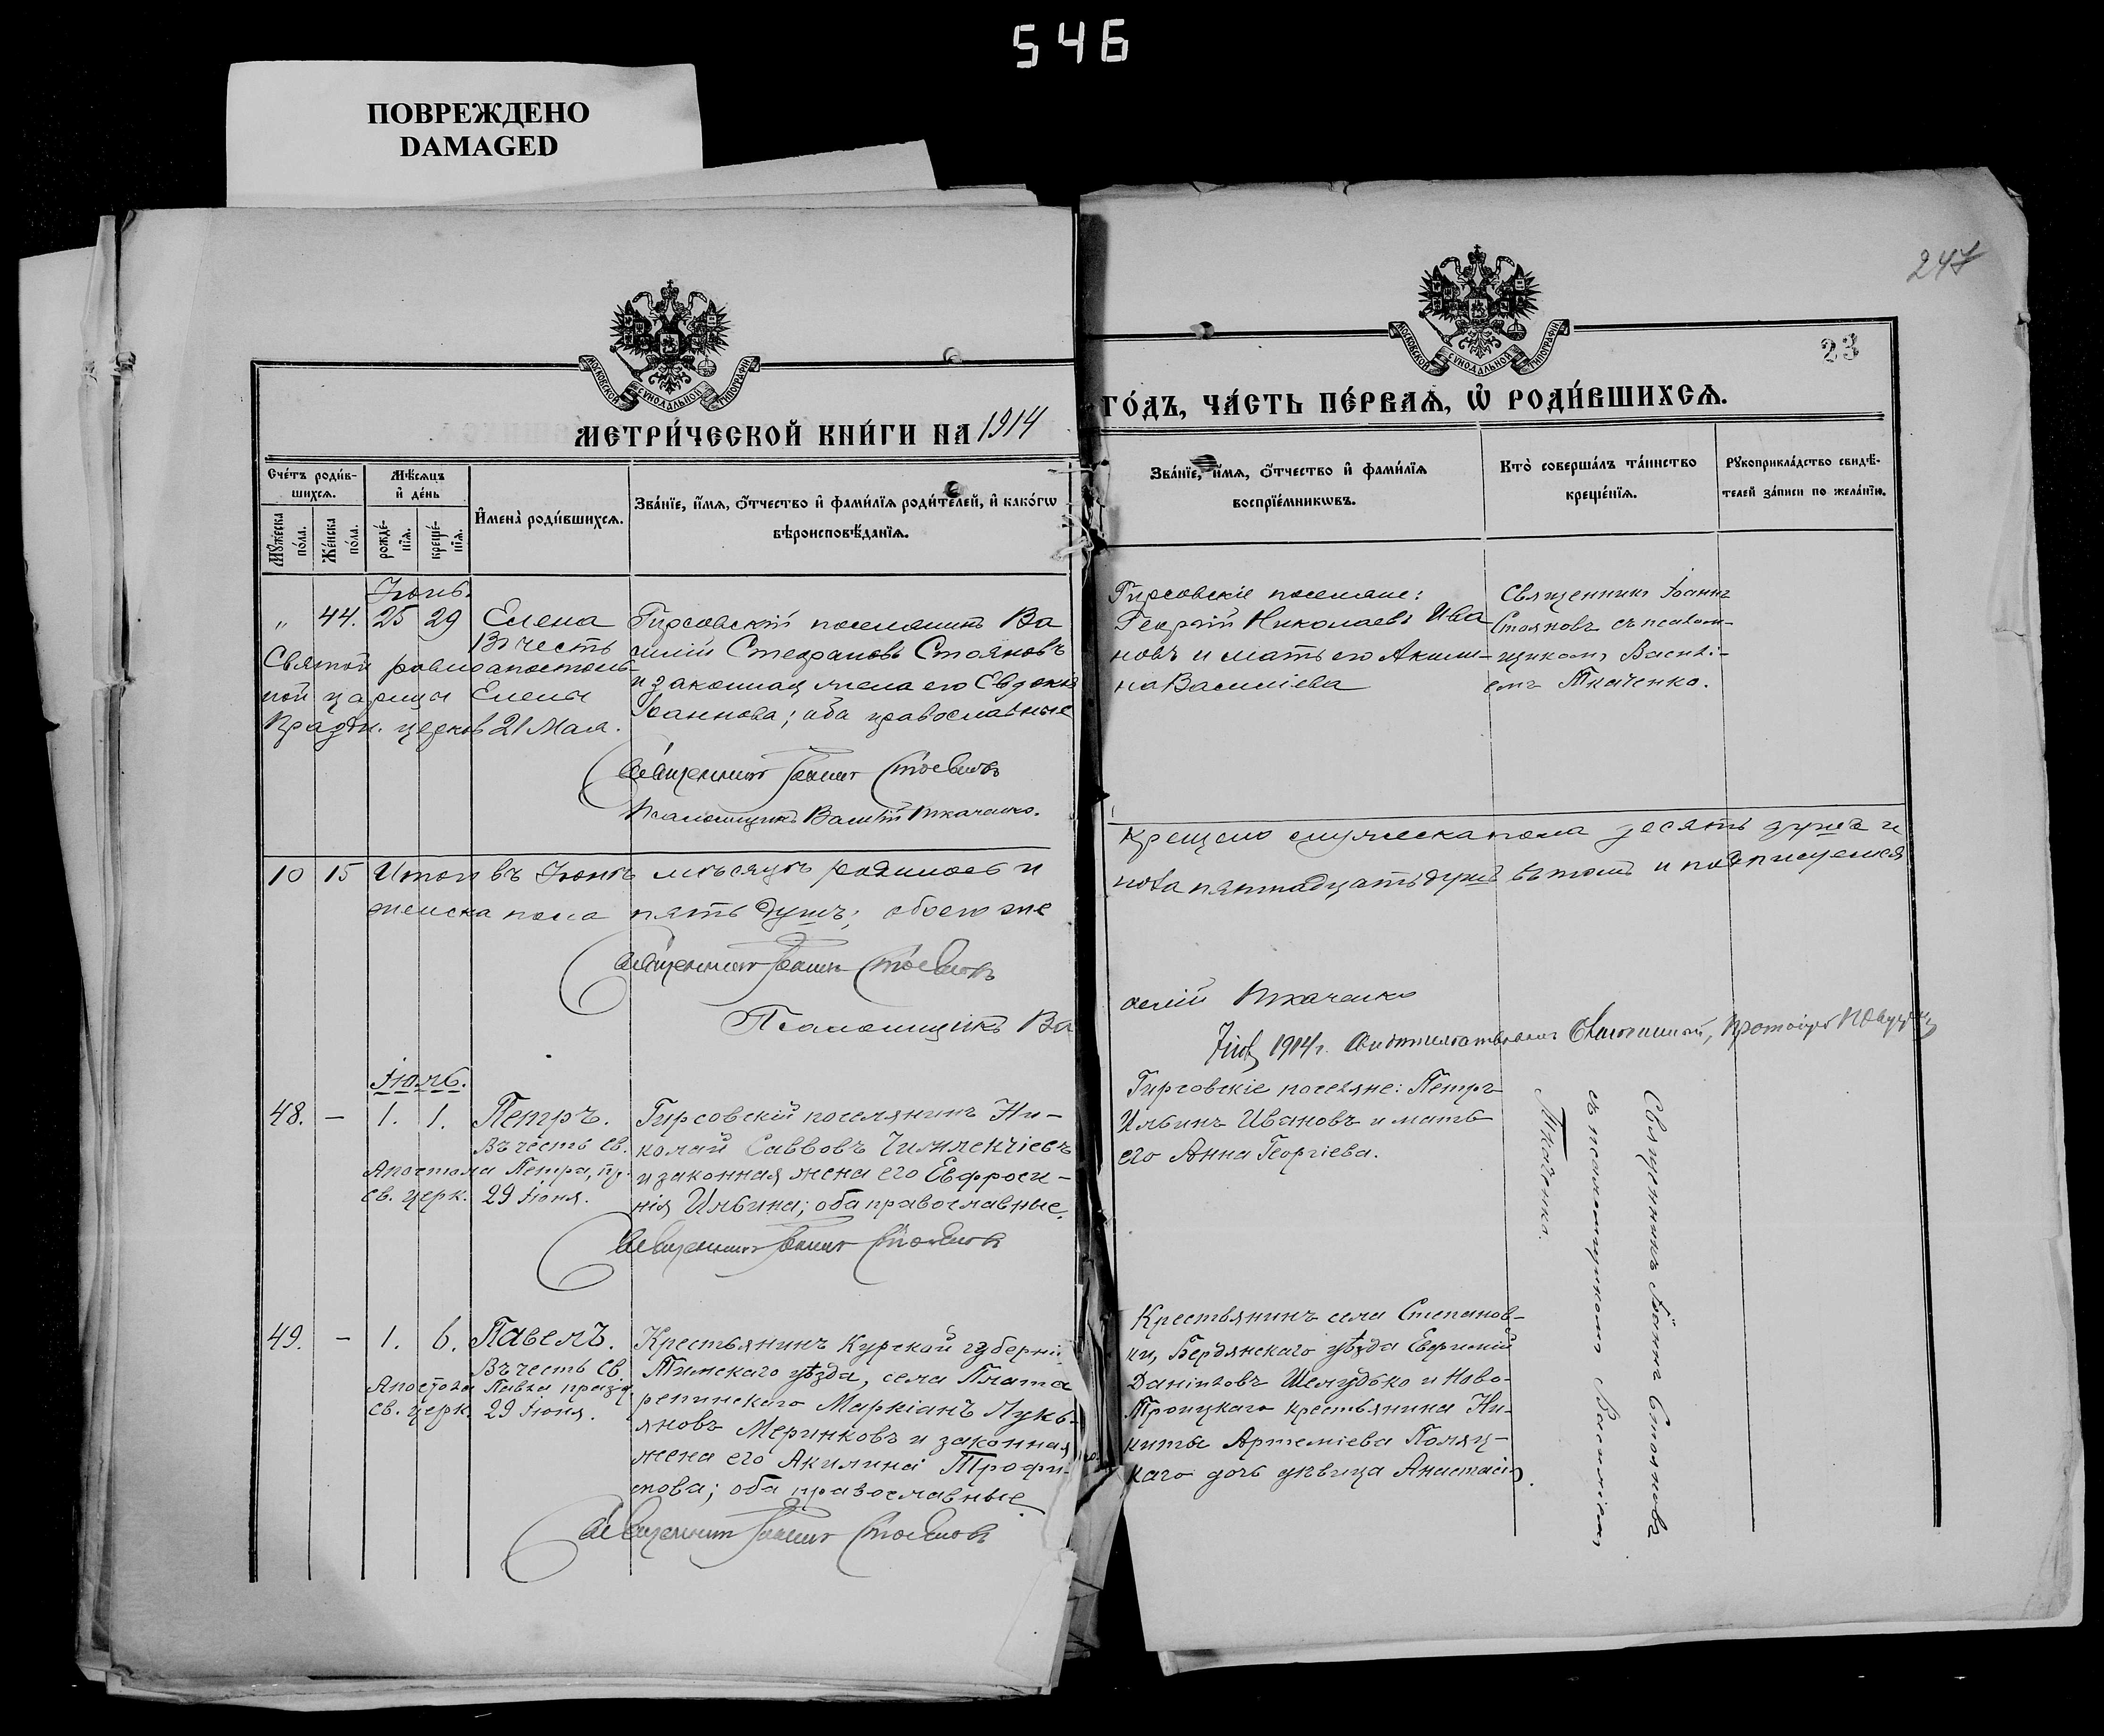 546
ПОВРЕЖДЕНО
DAMAGED
247
23
МОСКОВСКОЙ СѴНОДАЛЬНОЙ ТИПОГРАФІИ
МОСКОВСКОЙ СѴНОДАЛЬНОЙ ТИПОГРАФІИ
МЕТРИ́ЧЕСКОЙ КНИ́ГИ НА 1914
ГО́ДЪ, ЧА́СТЬ ПЕ́РВАѦ, Ѡ҆ РОДИ́ВШИХСѦ.
Счє́тъ роди́в-
шихсѧ.
Мѣ́сѧцъ
и҆ де́нь
Мꙋ́жеска по́ла.
Же́нска по́ла.
рожде́-
нїѧ.
креще́-
нїѧ.
И҆мена̀ роди́вшихсѧ.
Зва́нїе, и҆́мѧ, ѻ҆́тчество и҆ фами́лїѧ роди́телей, и҆ како́гѡ
вѣроисповѣ́данїѧ.
Зва́нїе, и҆́мѧ, ѻ҆́тчество и҆ фами́лїѧ
воспрїе́мникѡвъ.
Кто̀ соверша́лъ та́инство
креще́нїѧ.
Рꙋкоприкла́дство свидѣ́-
телей за́писи по жела́нїю.
Іюнь.
" 44. 25 29 Елена
Въ честь
Святой равноапостоль-
ной царицы Елены
Праздн. церков 21 Мая.
Гирсовскій поселянинъ Ва
силій Стефановъ Стояновъ
и законная жена его Евдокія
Іоаннова; оба православные
Священникъ Іоаннъ Стояновъ
Псаломщикъ Василій Ткаченко.
Гирсовскіе поселяне:
Георгій Николаевъ Ива
новъ и мать его Акили-
на Василіева
Священникъ Іоаннъ
Стояновъ съ псалом-
щикомъ Василі-
емъ Ткаченко.
10 15 Итого въ Іюнѣ мѣсяцѣ родилось и
крещено мужеска пола десять душъ и
женска пола пять душъ; обоего же
пола пятнадцать душъ въ томъ и подписуемся
Священникъ Іоаннъ Стояновъ
Псаломщикъ Ва
силій Ткаченко
1914 г. Протоіерей
Іюль.
48. — 1. 1. Петръ.
Въ честь св.
Апостола Петра, пр.
св. церк. 29 Іюня.
Гирсовскій поселянинъ Ни-
колай Саввовъ Чимлекчіевъ
и законная жена его Евфроси-
нія Ильина; оба православные.
Священникъ Іоаннъ Стояновъ
Гирсовскіе поселяне: Петръ
Ильинъ Ивановъ и мать
его Анна Георгіева.
Священникъ Іоаннъ Стояновъ
съ псаломщикомъ Василіемъ
Ткаченко.
49. — 1. 6. Павелъ.
Въ честь св.
Апостола Павла празд.
св. церк. 29 Іюня.
Крестьянинъ Курской губерніи
Тимского уѣзда, села Плата
репинскаго Маркіанъ Лукь-
яновъ Меринковъ и законная
жена его Акилина Трофи-
мова; оба православные
Священникъ Іоаннъ Стояновъ
Крестьянинъ села Степанов-
ки, Бердянскаго уѣзда Евфимій
Даніиловъ Шелудько и Ново-
Троицкаго крестьянина Ни-
киты Артеміева Поляц-
каго дочь дѣвица Анастасія.